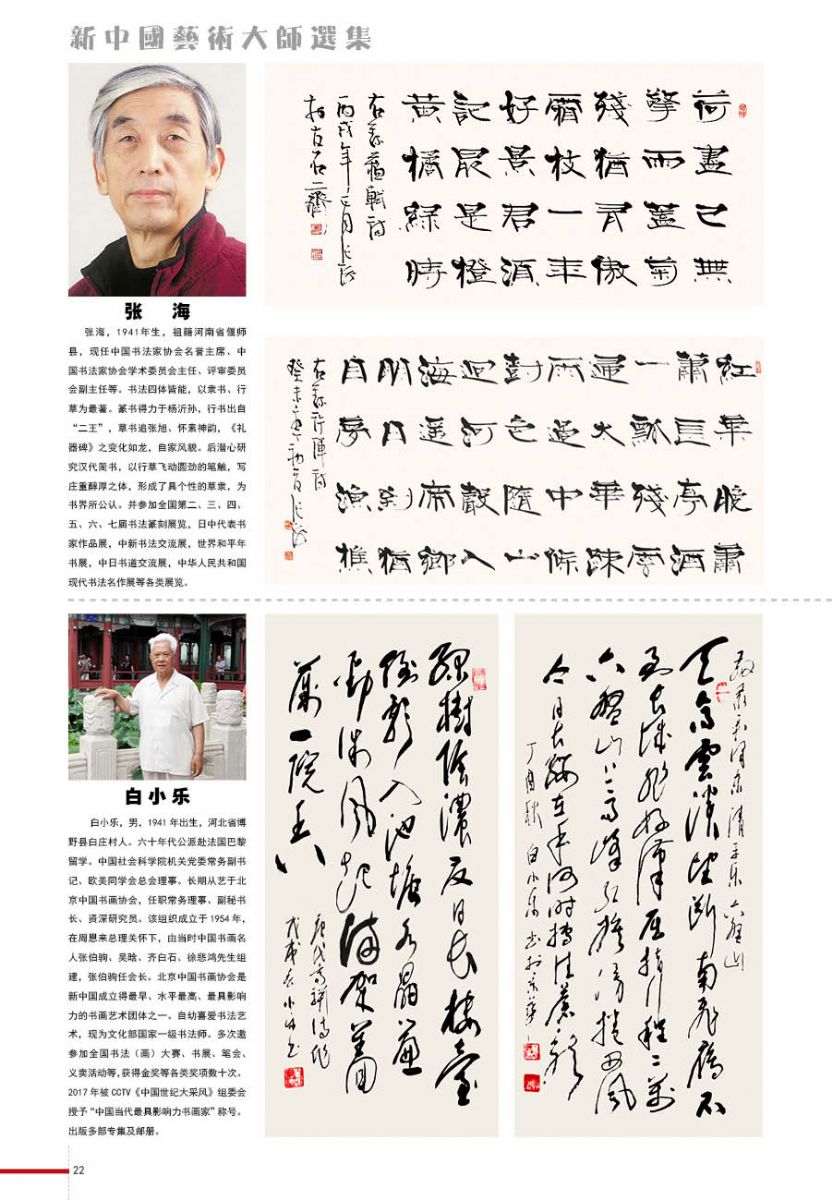 新中國藝術大師選集
荷盡已無
擎雨蓋菊
殘猶有傲
霜枝一年
好景君須
記最是橙
黄橘綠時
右录蘇軾诗
丙戌年正月张海
於古石二齋
张 海
张海，1941年生，祖籍河南省偃师
县，现任中国书法家协会名誉主席、中
国书法家协会学术委员会主任、评审委员
会副主任等。书法四体皆能，以隶书、行
草为最著。篆书得力于杨沂孙，行书出自
“二王”，草书追张旭、怀素神韵，《礼
器碑》之变化如龙，自家风貌。后潜心研
究汉代简书，以行草飞动圆劲的笔触，写
庄重醇厚之体，形成了具个性的草隶，为
书界所公认。并参加全国第二、三、四、
五、六、七届书法篆刻展览，日中代表书
家作品展，中新书法交流展，世界和平年
书展，中日书道交流展，中华人民共和国
现代书法名作展等各类展览。
紅葉晚蕭
蕭長亭酒
一瓢殘雲
歸太華疎
雨過中條
樹色隨山
迥河聲入
海遙帝鄉
明日到猶
自夢漁樵
白小乐
白小乐，男，1941 年出生，河北省博
野县白庄村人。六十年代公派赴法国巴黎
留学。中国社会科学院机关党委常务副书
记、欧美同学会总会理事。长期从艺于北
京中国书画协会，任职常务理事、副秘书
长、资深研究员。该组织成立于 1954 年，
在周恩来总理关怀下，由当时中国书画名
人张伯驹、吴晗、齐白石、徐悲鸿先生组
建，张伯驹任会长。北京中国书画协会是
新中国成立得最早、水平最高、最具影响
力的书画艺术团体之一。自幼喜爱书法艺
术，现为文化部国家一级书法师。多次邀
参加全国书法（画）大赛、书展、笔会、
义卖活动等，获得金奖等各类奖项数十次。
2017 年被 CCTV《中国世纪大采风》组委会
授予“中国当代最具影响力书画家”称号。
出版多部专集及邮册。
敬录毛泽东清平乐六盘山
天高雲淡望断南飛雁不
到长城非好漢屈指行程二萬
六盘山上高峰红旗漫捲西风
今日长缨在手何时缚住苍龙
丁酉秋 白小乐书於京華
绿樹陰濃夏日長樓臺
倒影入池塘水晶簾
動微風起满架蔷
薇一院香
戊戌春小乐书
22